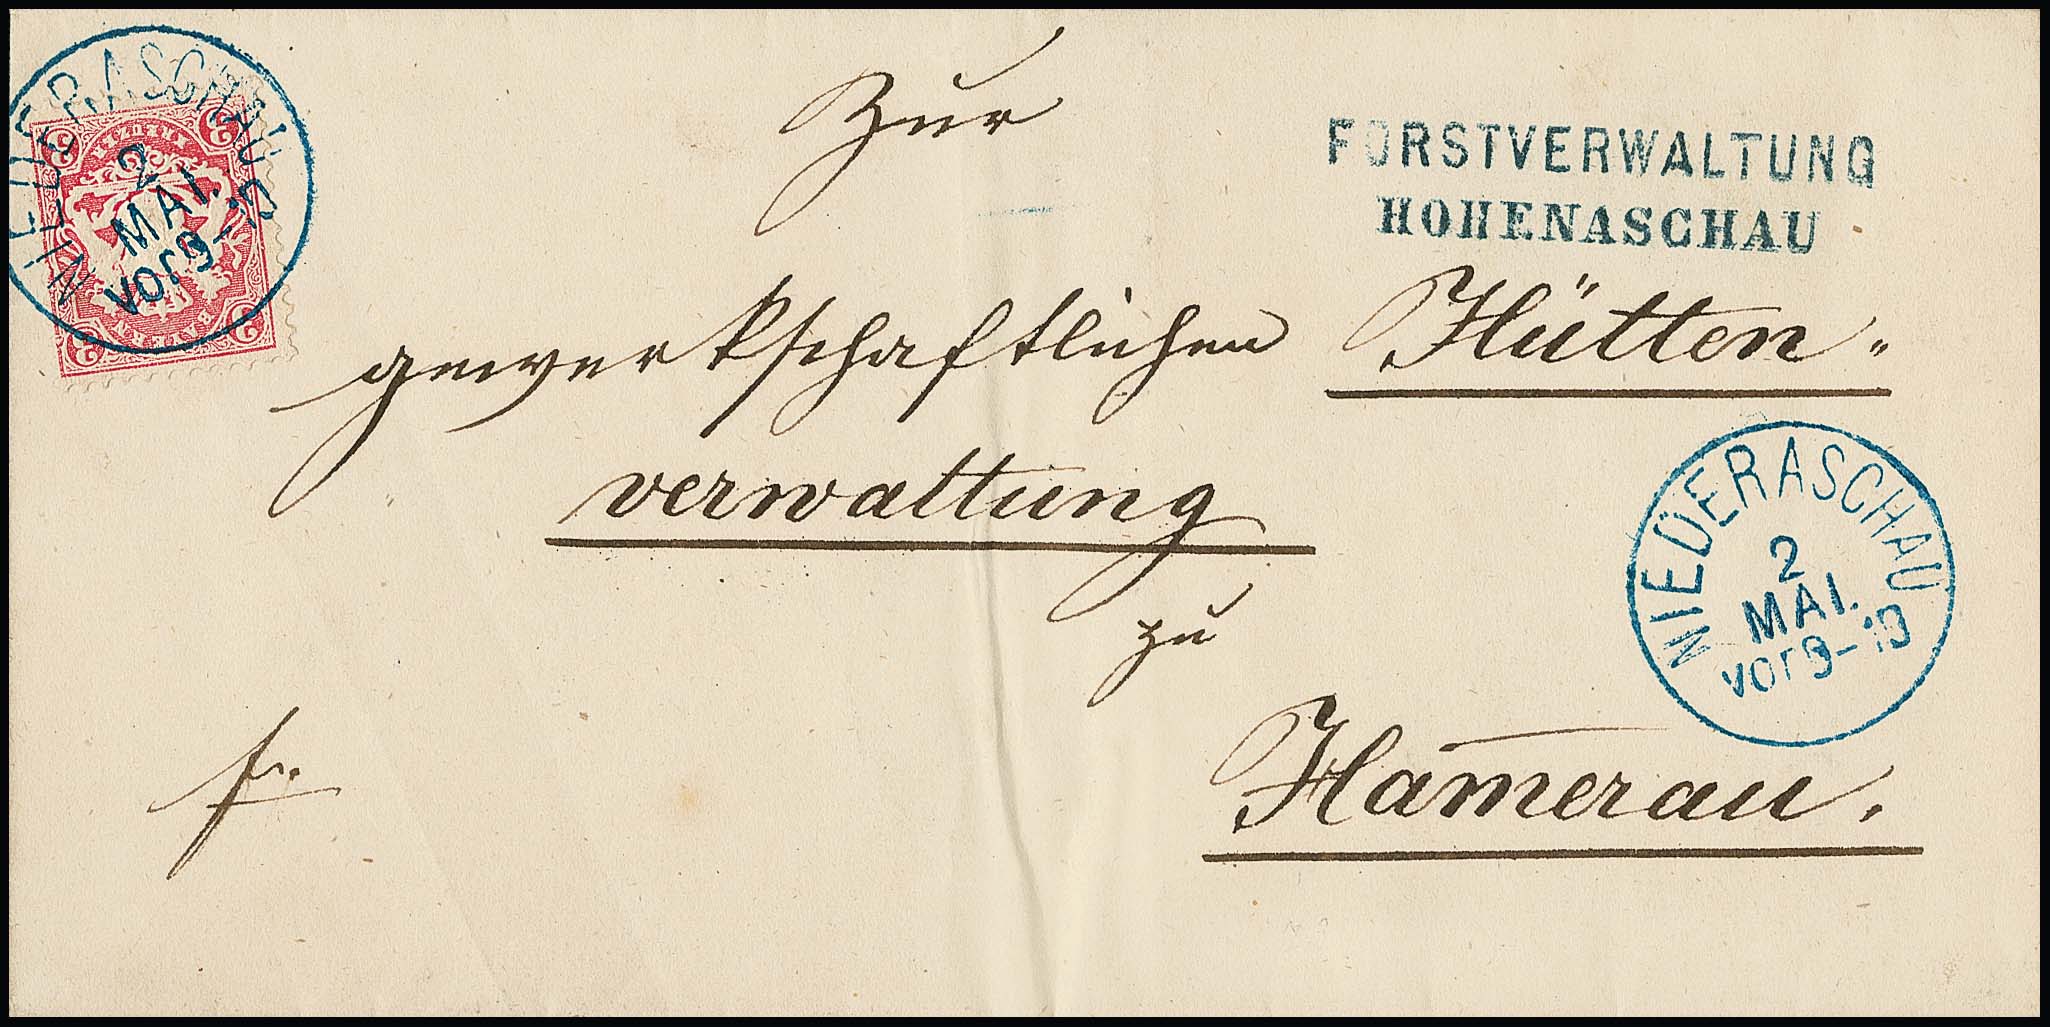 NIEDERASCHAU
2
MAI.
vor9-
3 KREUZER 3
BAYERN
Zur
FORSTVERWALTUNG
HOHENASCHAU
gewerkschaftlichen Hütten-
verwaltung
zu
Ham̄erau.
fr.
NIEDERASCHAU
2
MAI.
vor9-10